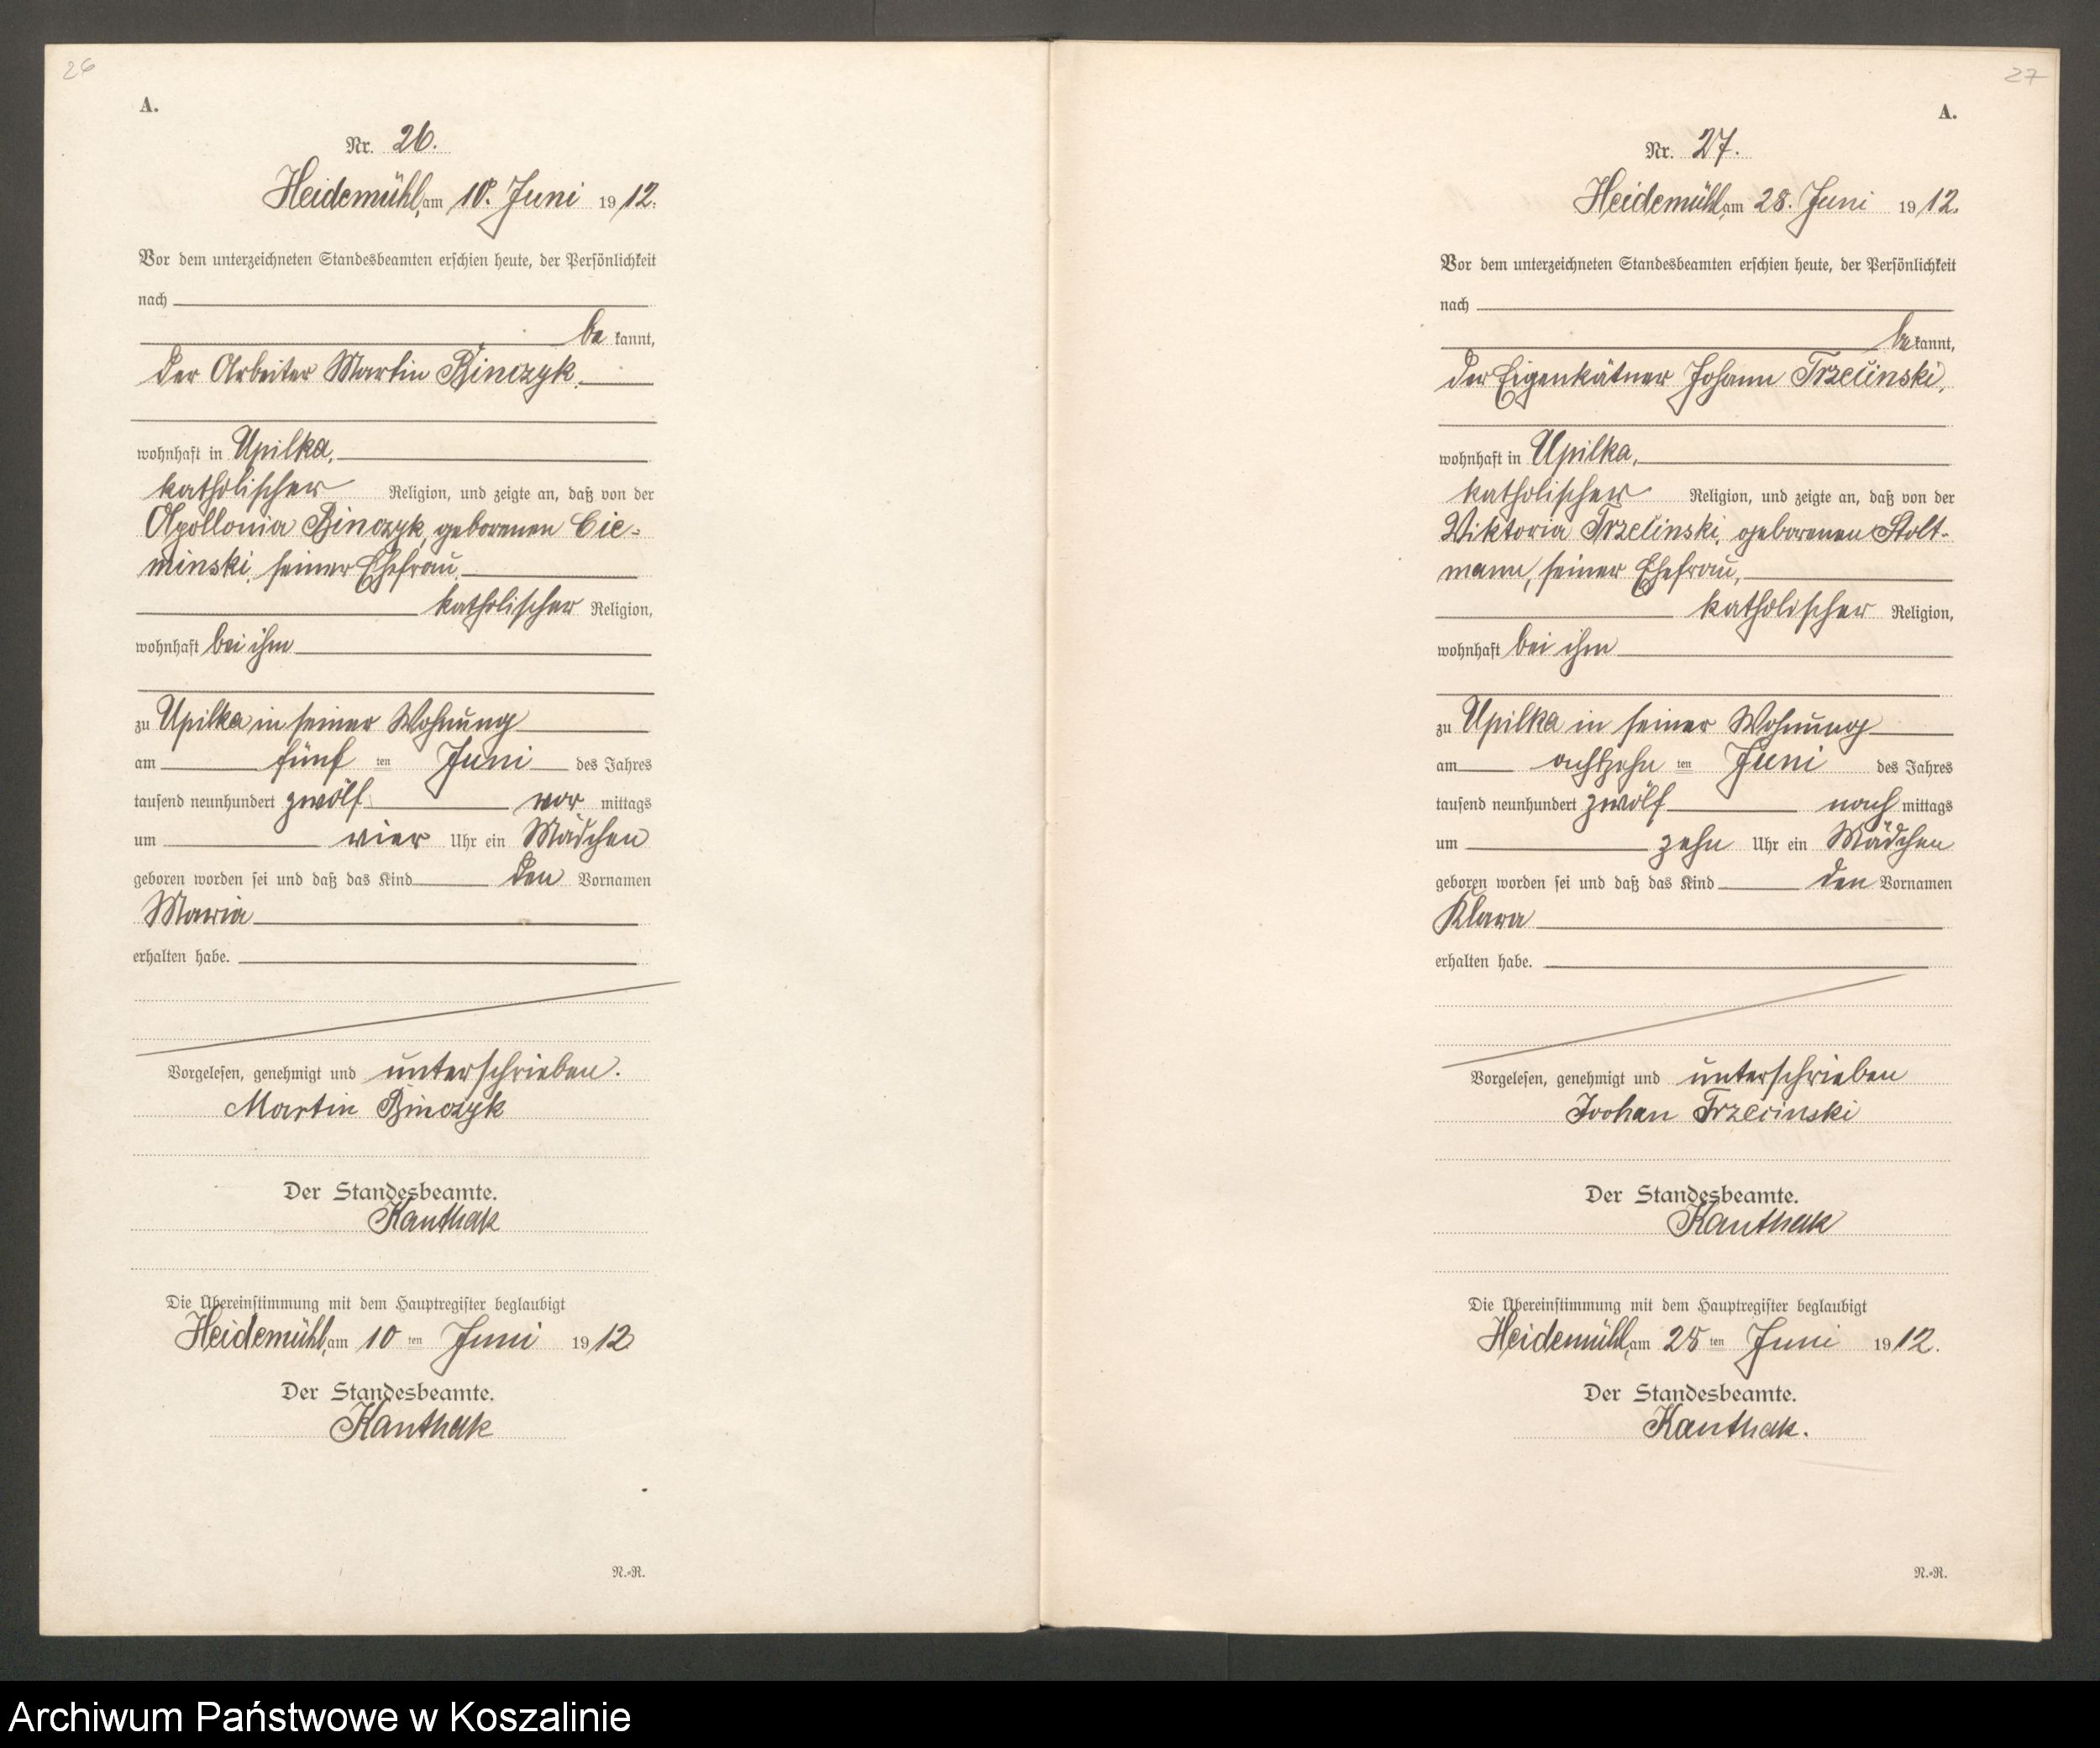 26
A.
Nr. 26.
Heidemühl, am 10. Juni 1912.
Vor dem unterzeichneten Standesbeamten erschien heute, der Persönlichkeit
nach
be kannt,
der Arbeiter Martin Binczyk,
wohnhaft in Upilka,
katholischer Religion, und zeigte an, daß von der
Apollonia Binczyk, geborenen Cie-
minski, seiner Ehefrau,
katholischer Religion,
wohnhaft bei ihm
zu Upilka in seiner Wohnung
am fünf ten Juni des Jahres
tausend neunhundert zwölf vor mittags
um vier Uhr ein Mädchen
geboren worden sei und daß das Kind den Vornamen
Maria
erhalten habe.
Vorgelesen, genehmigt und unterschrieben.
Martin Binczyk
Der Standesbeamte.
Kanthak
Die Übereinstimmung mit dem Hauptregister beglaubigt
Heidemühl, am 10 ten Juni 1912
Der Standesbeamte.
Kanthak
N.-R.
27
A.
Nr. 27.
Heidemühl, am 28. Juni 1912.
Vor dem unterzeichneten Standesbeamten erschien heute, der Persönlichkeit
nach
be kannt,
der Eigenkätner Johann Trzeinski,
wohnhaft in Upilka,
katholischer Religion, und zeigte an, daß von der
Viktoria Trzeinski, geborenen Stolt-
mann, seiner Ehefrau,
katholischer Religion,
wohnhaft bei ihm
zu Upilka in seiner Wohnung
am achtzehn ten Juni des Jahres
tausend neunhundert zwölf nach mittags
um zehn Uhr ein Mädchen
geboren worden sei und daß das Kind den Vornamen
Klara
erhalten habe.
Vorgelesen, genehmigt und unterschrieben
Trzecinski
Der Standesbeamte.
Kanthak
Die Übereinstimmung mit dem Hauptregister beglaubigt
Heidemühl, am 28 ten Juni 1912.
Der Standesbeamte.
Kanthak.
N.-R.
Archiwum Państwowe w Koszalinie